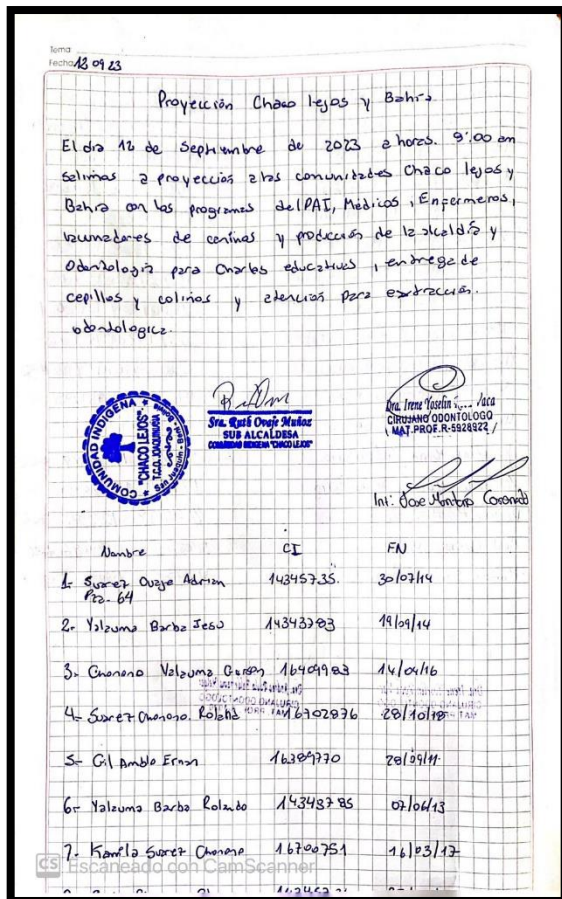 Tema
Fecha 12 09 23
Proyección Chaco lejos y Bahía
El día 12 de Septiembre de 2023 a horas. 9:00 am
Salimos a proyección a las comunidades Chaco lejos y
Bahía con los programas del PAI, Médicos, Enfermeros,
vacunadores de caninos y producción de la alcaldía y
Odontología para Charlas educativas, entrega de
cepillos y colinos y atención para extracción.
odontologica.
COMUNIDAD INDIGENA
"CHACO LEJOS"
T.C.O. JOAQUINIANO
San Joaquín - Beni
Sra. Ruth Ovaje Muñoz
SUB ALCALDESA
COMUNIDAD INDIGENA "CHACO LEJOS"
Dra. Irene Yoselin Vaca
CIRUJANO ODONTOLOGO
MAT.PROF.R-5928922
Int: Jose Montaño Coronado
Nombre CI FN
1- Suarez Ovaje Adrian 14345735. 30/07/14
Pza-64
2- Yalzuma Barba Jesu 14343783 19/09/14
3- Chonono Yalzuma Gerson 16409983 14/04/16
4- Suarez Chonono. Roland 16702876 28/10/18
5- Gil Amblo Ernan 16389770 28/09/11.
6- Yalzuma Barba Rolando 14343785 07/06/13
7. Kamila Suarez Chonono 16700751 16/03/17
CS Escaneado con CamScanner